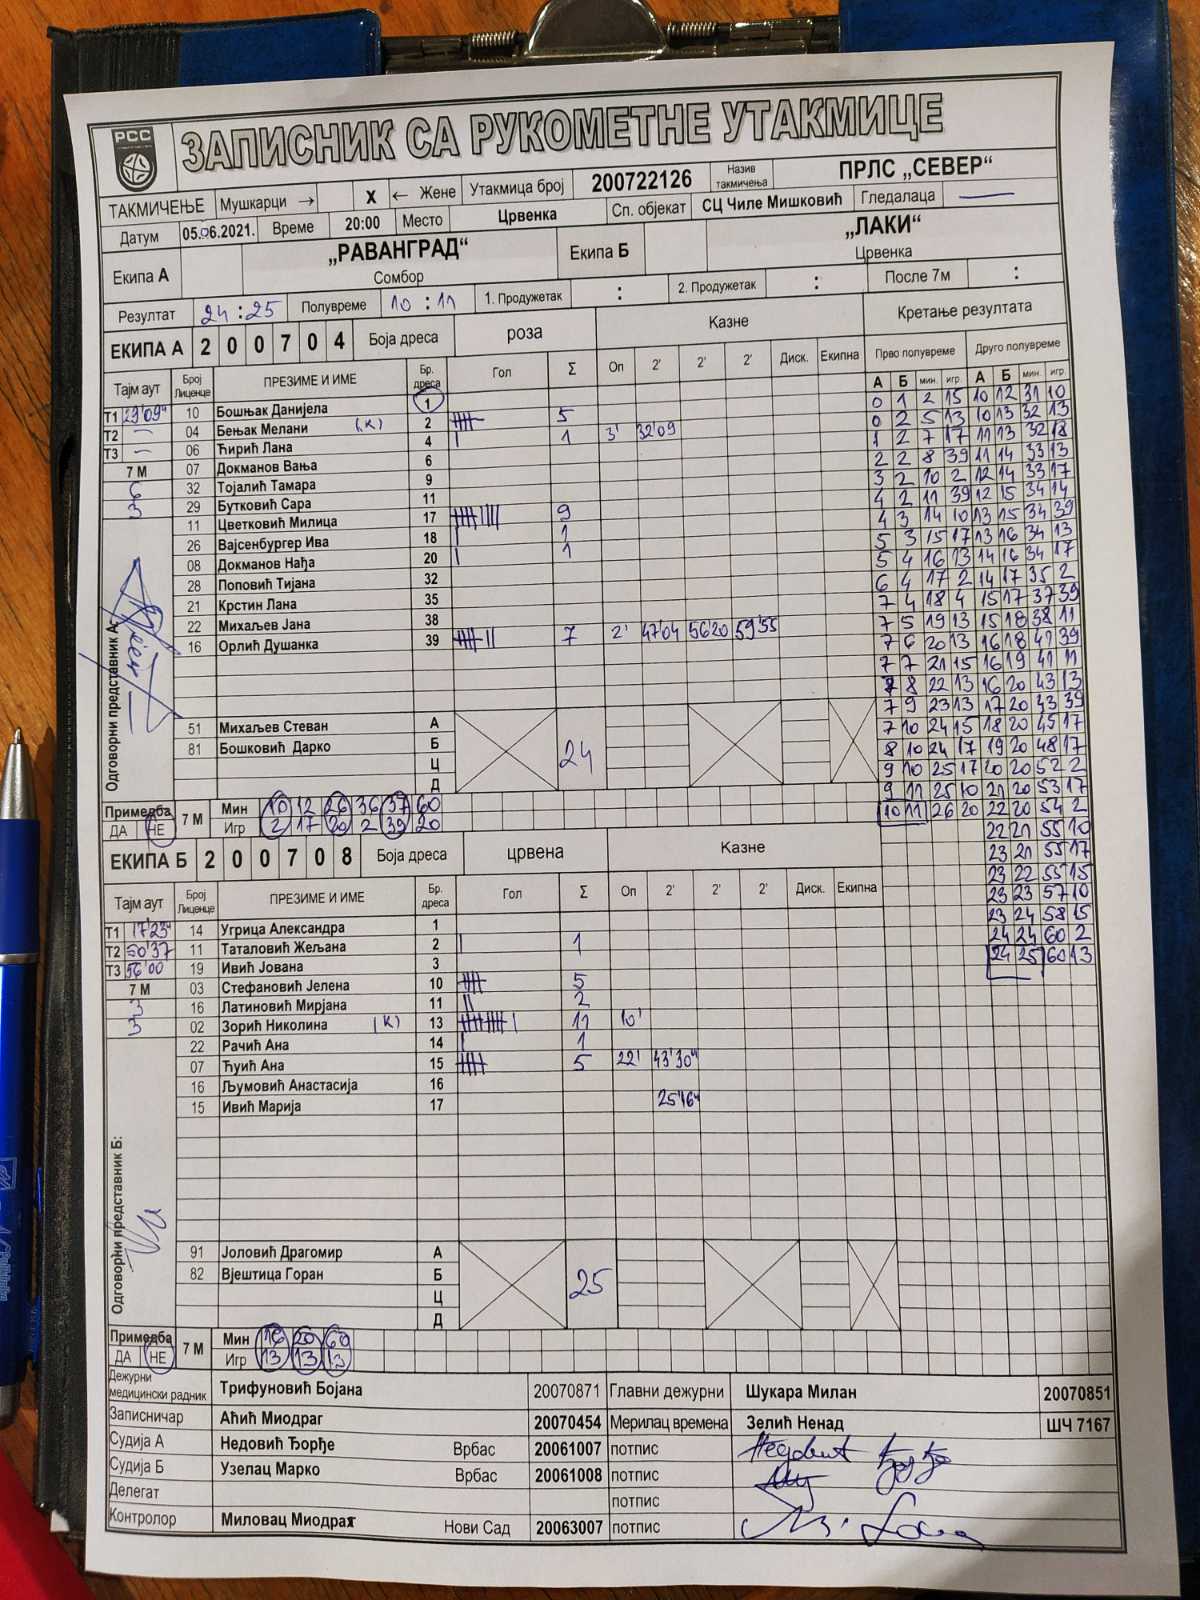 РСС
ЗАПИСНИК СА РУКОМЕТНЕ УТАКМИЦЕ
ТАКМИЧЕЊЕ Мушкарци → X ← Жене Утакмица број 200722126 Назив такмичења ПРЛС „СЕВЕР“
Датум 05.06.2021. Време 20:00 Место Црвенка Сп. објекат СЦ Чиле Мишковић Гледалаца —
Екипа А „РАВАНГРАД“ Сомбор Екипа Б „ЛАКИ“ Црвенка
Резултат 24:25 Полувреме 10:11 1. Продужетак : 2. Продужетак : После 7м :
ЕКИПА А 2 0 0 7 0 4 Боја дреса роза Казне Кретање резултата
Прво полувреме Друго полувреме
Тајм аут Број Лиценце ПРЕЗИМЕ И ИМЕ Бр. дреса Гол Σ Оп 2' 2' 2' Диск. Екипна
А Б мин. игр. А Б мин. игр.
Т1 29'09" 10 Бошњак Данијела 1
Т2 — 04 Бењак Мелани (К) 2 5
Т3 — 06 Ћирић Лана 4 1 3' 32'09
7 М 07 Докманов Вања 6
6 32 Тојалић Тамара 9
3 29 Бутковић Сара 11
11 Цветковић Милица 17 9
26 Вајсенбургер Ива 18 1
08 Докманов Нађа 20 1
28 Поповић Тијана 32
21 Крстин Лана 35
22 Михаљев Јана 38
16 Орлић Душанка 39 7 2' 47'04 56'20 59'55
51 Михаљев Стеван А
81 Бошковић Дарко Б 24
Ц
Д
Одговорни представник А:
0 1 2 15 10 12 31 10
0 2 5 13 10 13 32 13
1 2 7 17 11 13 32 18
2 2 8 39 11 14 33 13
3 2 10 2 12 14 33 17
4 2 11 39 12 15 34 14
4 3 14 10 13 15 34 39
5 3 15 17 13 16 34 13
5 4 16 13 14 16 34 17
6 4 17 2 14 17 35 2
7 4 18 4 15 17 37 39
7 5 19 13 15 18 38 11
7 6 20 13 16 18 41 39
7 7 21 15 16 19 41 11
7 8 22 13 16 20 43 13
7 9 23 13 17 20 43 39
7 10 24 15 18 20 45 17
8 10 24 17 19 20 48 17
9 10 25 17 20 20 52 2
9 11 25 10 21 20 53 17
10 11 26 20 22 20 54 2
22 21 55 10
23 21 55 17
23 22 55 15
23 23 57 10
23 24 58 15
24 24 60 2
24 25 60 13
Примедба ДА НЕ 7 М Мин 10 12 26 36 37 60
Игр 2 17 20 2 39 20
ЕКИПА Б 2 0 0 7 0 8 Боја дреса црвена Казне
Тајм аут Број Лиценце ПРЕЗИМЕ И ИМЕ Бр. дреса Гол Σ Оп 2' 2' 2' Диск. Екипна
Т1 17'23" 14 Угрица Александра 1
Т2 50'37 11 Таталовић Жељана 2 1
Т3 56'00 19 Ивић Јована 3
7 М 03 Стефановић Јелена 10 5
3 16 Латиновић Мирјана 11 2
3 02 Зорић Николина (К) 13 11 10'
22 Рачић Ана 14 1
07 Ћуић Ана 15 5 22' 43'30"
16 Љумовић Анастасија 16
15 Ивић Марија 17
Одговорни представник Б:
91 Јоловић Драгомир А
82 Вјештица Горан Б 25
Ц
Д
Примедба ДА НЕ 7 М Мин 20 60
Игр 13 13 13
Дежурни медицински радник Трифуновић Бојана 20070871 Главни дежурни Шукара Милан 20070851
Записничар Аћић Миодраг 20070454 Мерилац времена Зелић Ненад ШЧ 7167
Судија А Недовић Ђорђе Врбас 20061007 потпис Недовић Ђорђе
Судија Б Узелац Марко Врбас 20061008 потпис
Делегат потпис
Контролор Миловац Миодраг Нови Сад 20063007 потпис